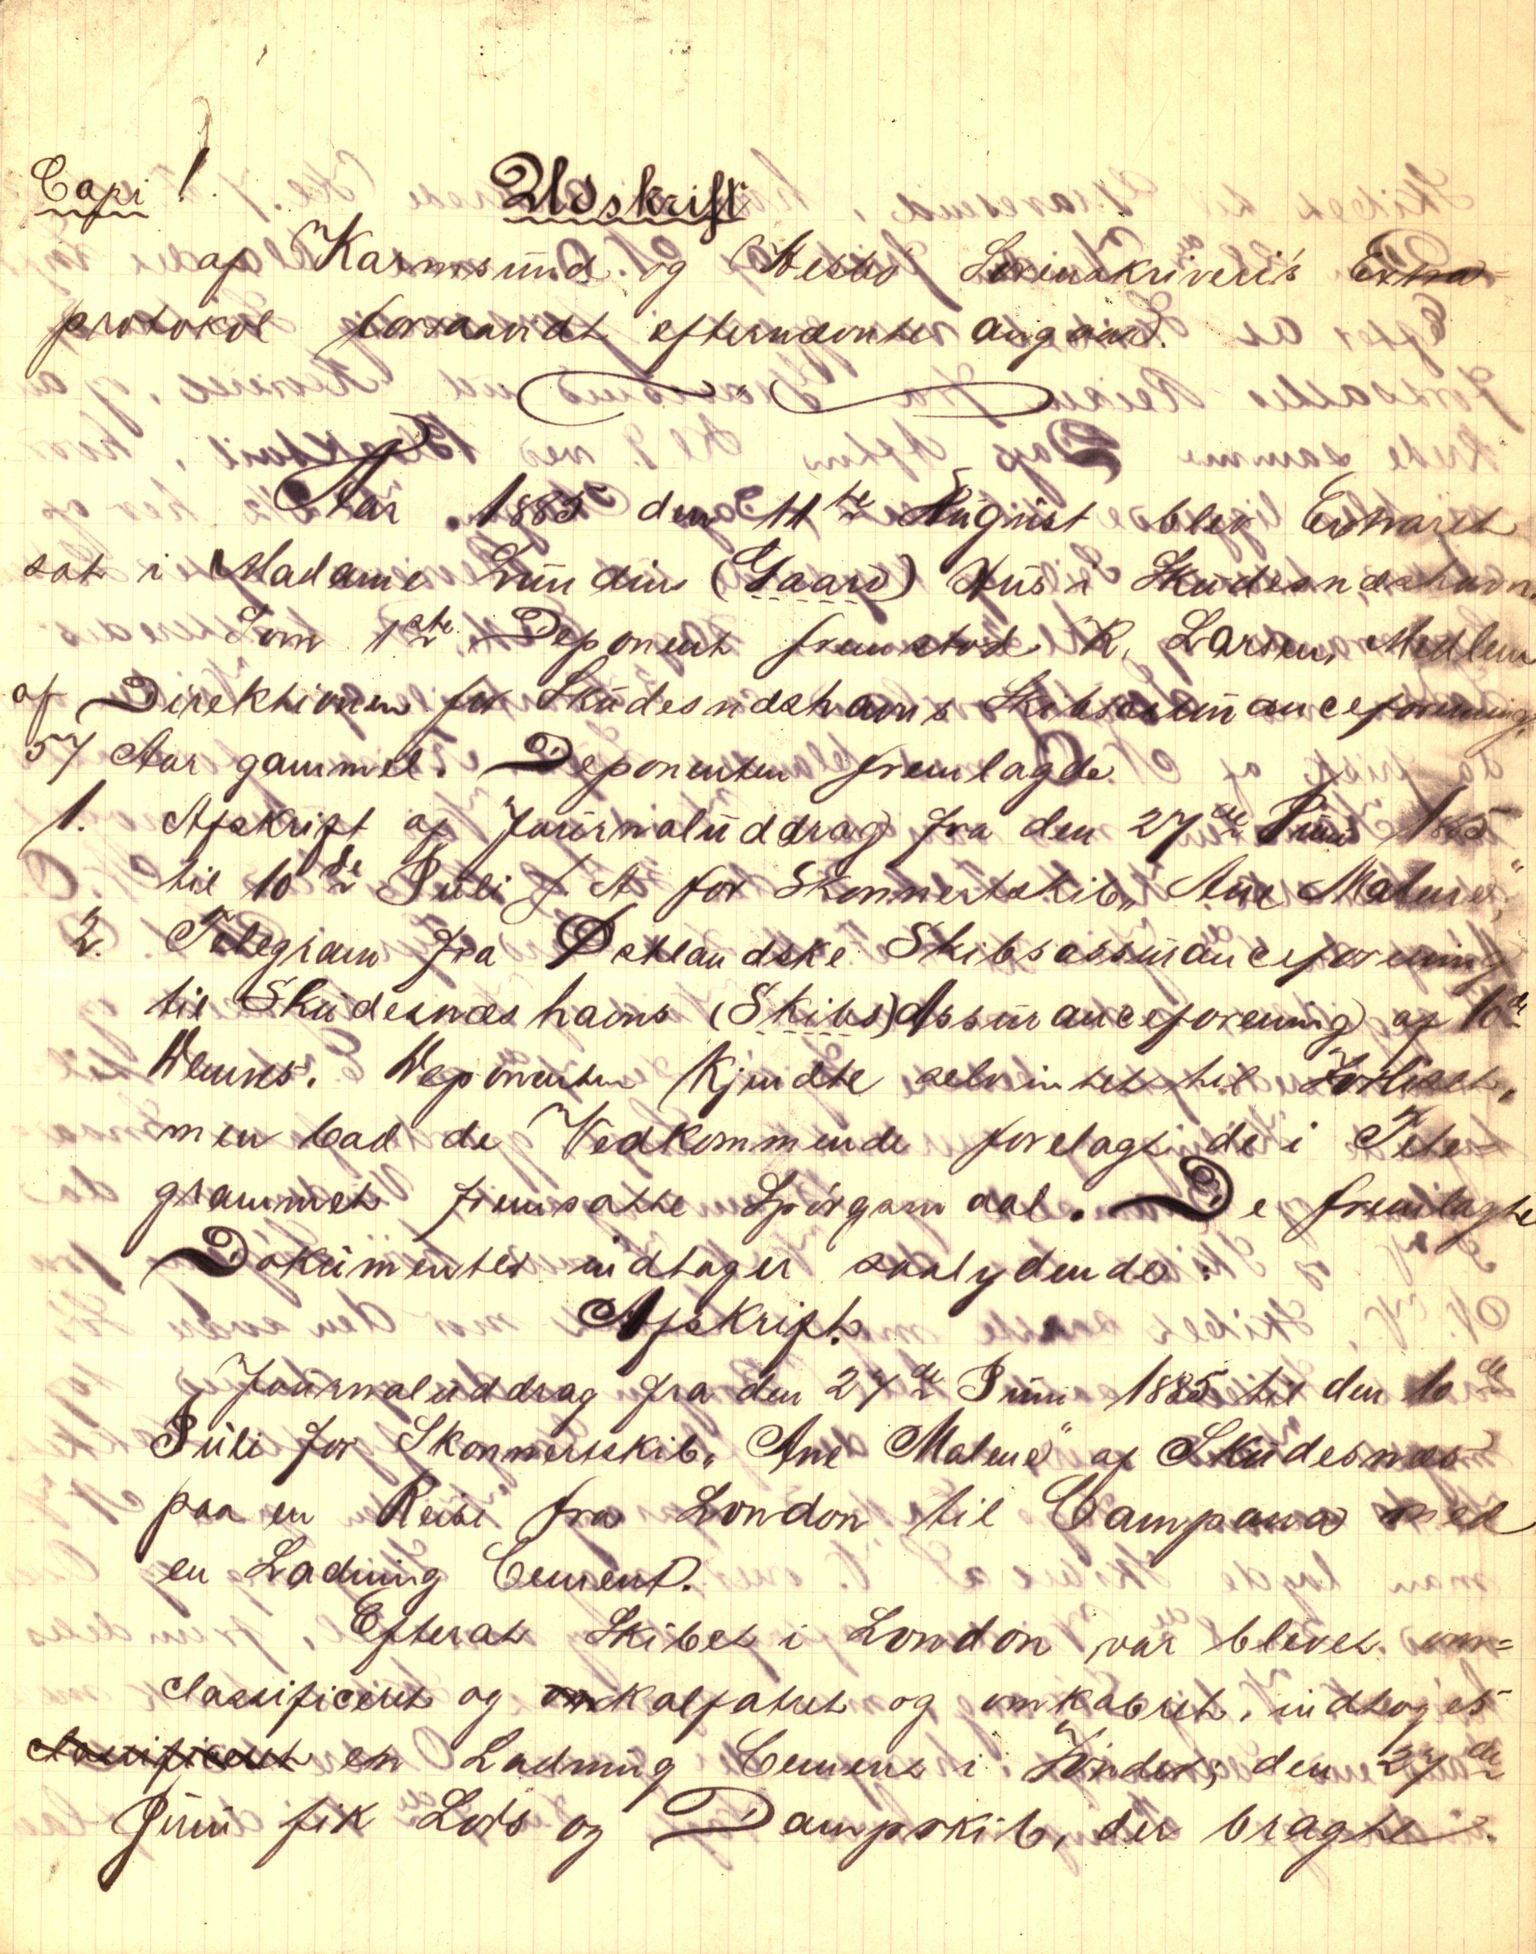 Copi !
Udskrift
af Karmsund og Hesbø Sorenskriveri's Extra-
protokol forsaavidt efternævnte angaar.
Aar 1885 den 11te August blev Extraret
sat i Madame Lundins (Gaard) Hus i Skudesnæshavn.
Som 1ste Deponent fremstod R. Larsen, Medlem
af Direktionen for Skudesnæshavns Skibsassuranceforening,
57 Aar gammel. Deponenten fremlagde
1. Afskrift af Journaluddrag fra den 27de Juni 1885
til 10de Juli f A for Skonnertskib „Ane Malene“,
2. Telegram fra Østlandske Skibsassuranceforening
til Skudesnæshavns (Skibs)Assuranceforening af 10de
Deponenten kjendte selv intet til Forliset,
men bad de Vedkommende forelagt de i Tele-
grammet fremsatte Spørgsmaal. De fremlagte
Dokumenter indtages saalydende:
Afskrift.
Journaluddrag fra den 27de Juni 1885 til den 10de
Juli for Skonnertskib „Ane Malene“ af Skudesnæs
paa en Reise fra London til Campana med
en Ladning Cement.
Efterat Skibet i London var blevet om=
classificeret og omkalfatret og omkobret, indtoges
classificeret en Ladning Cement i den 27de
Juni fik Lods og Dampskib, der bragte